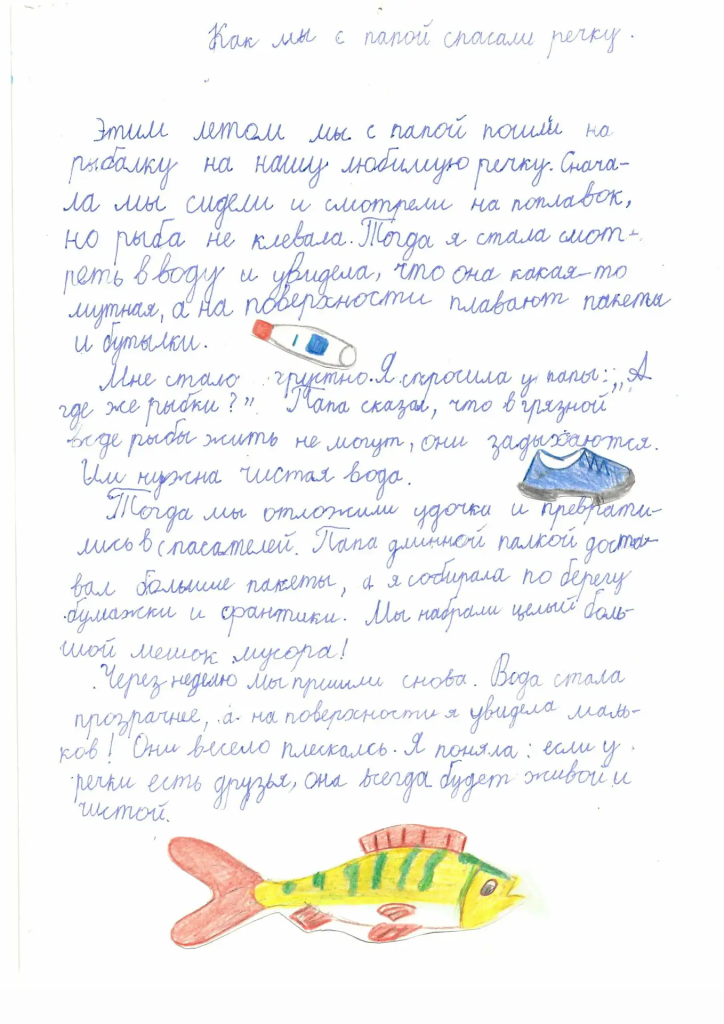 Как мы с папой спасали речку.
Этим летом мы с папой пошли на
рыбалку на нашу любимую речку. Снача-
ла мы сидели и смотрели на поплавок,
но рыба не клевала. Тогда я стала смот-
реть в воду и увидела, что она какая-то
мутная, а на поверхности плавают пакеты
и бутылки.
Мне стало грустно. Я спросила у папы: „А
где же рыбки?” Папа сказал, что в грязной
воде рыбы жить не могут, они задыхаются.
Им нужна чистая вода.
Тогда мы отложили удочки и преврати-
лись в спасателей. Папа длинной палкой доста-
вал большие пакеты, а я собирала по берегу
бумажки и фантики. Мы набрали целый боль-
шой мешок мусора!
Через неделю мы пришли снова. Вода стала
прозрачнее, а на поверхности я увидела маль-
ков! Они весело плескалсь. Я поняла: если у
речки есть друзья, она всегда будет живой и
чистой.